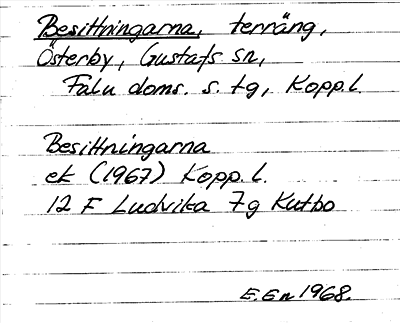 Besittningarna, terräng,
Österby, Gustafs sn,
Falu doms. s. tg, Kopp.l.
Besittningarna
ek (1967) Kopp. l.
12 F Ludvika 7g Kutbo
E. En 1968.